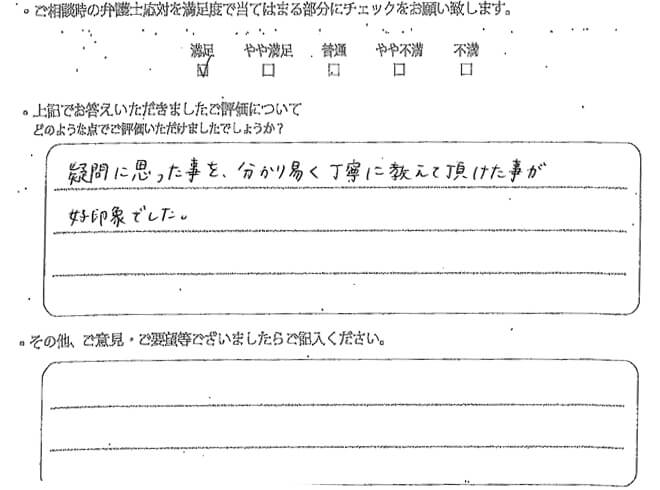 。ご相談時の弁護士応対を満足度で当てはまる部分にチェックをお願い致します。
満足 やや満足 普通 やや不満 不満
☑ □ □ □ □
。上記でお答えいただきましたご評価について
どのような点でご評価いただけましたでしょうか?
疑問に思った事を、分かり易く丁寧に教えて頂けた事が
好印象でした。
。その他、ご意見・ご要望等ございましたらご記入ください。